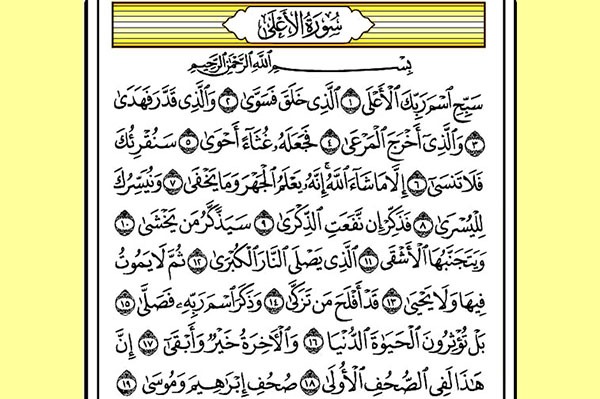 سُورَةُ الأَعْلَى
بِسْمِ اللَّهِ الرَّحْمَٰنِ الرَّحِيمِ
سَبِّحِ اسْمَ رَبِّكَ الْأَعْلَى ١ الَّذِي خَلَقَ فَسَوَّىٰ ٢ وَالَّذِي قَدَّرَ فَهَدَىٰ
٣ وَالَّذِي أَخْرَجَ الْمَرْعَىٰ ٤ فَجَعَلَهُ غُثَاءً أَحْوَىٰ ٥ سَنُقْرِئُكَ
فَلَا تَنسَىٰ ٦ إِلَّا مَا شَاءَ اللَّهُ ۚ إِنَّهُ يَعْلَمُ الْجَهْرَ وَمَا يَخْفَىٰ ٧ وَنُيَسِّرُكَ
لِلْيُسْرَىٰ ٨ فَذَكِّرْ إِن نَّفَعَتِ الذِّكْرَىٰ ٩ سَيَذَّكَّرُ مَن يَخْشَىٰ ١٠
وَيَتَجَنَّبُهَا الْأَشْقَى ١١ الَّذِي يَصْلَى النَّارَ الْكُبْرَىٰ ١٢ ثُمَّ لَا يَمُوتُ
فِيهَا وَلَا يَحْيَىٰ ١٣ قَدْ أَفْلَحَ مَن تَزَكَّىٰ ١٤ وَذَكَرَ اسْمَ رَبِّهِ فَصَلَّىٰ ١٥
بَلْ تُؤْثِرُونَ الْحَيَوٰةَ الدُّنْيَا ١٦ وَالْآخِرَةُ خَيْرٌ وَأَبْقَىٰ ١٧ إِنَّ
هَٰذَا لَفِي الصُّحُفِ الْأُولَىٰ ١٨ صُحُفِ إِبْرَٰهِيمَ وَمُوسَىٰ ١٩